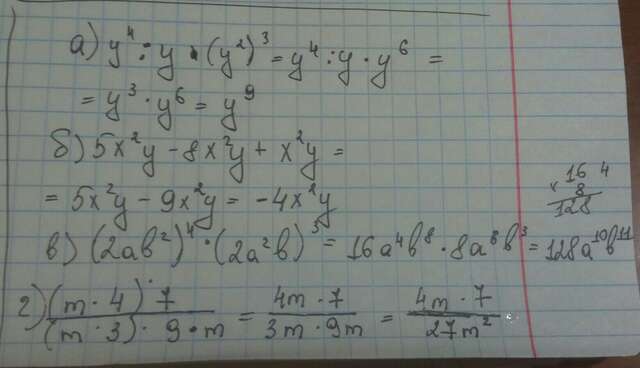 а) y⁴ : y · (y²)³ = y⁴ : y · y⁶ =
= y³ · y⁶ = y⁹
б) 5x²y - 8x²y + x²y =
= 5x²y - 9x²y = -4x²y
16 4
× 8
128
в) (2ab²)⁴ · (2a²b)³ = 16a⁴b⁸ · 8a⁶b³ = 128a¹⁰b¹¹
г) (m · 4) · 7 / (m · 3) · 9 · m = 4m · 7 / 3m · 9m = 4m · 7 / 27m²